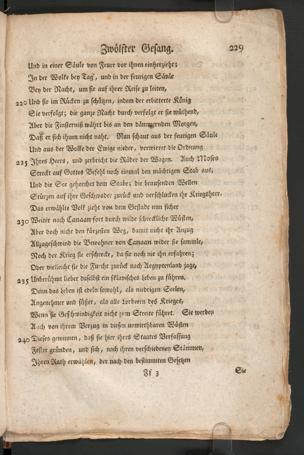 Zwölfter Gesang. 229
Und in einer Säule von Feuer vor ihnen einherziehe;
In der Wolke bey Tag', und in der feurigen Säule
Bey der Nacht, um sie auf ihrer Reise zu leiten,
220 Und sie im Rücken zu schützen, indem der erbitterte König
Sie verfolgt; die ganze Nacht durch verfolgt er sie wüthend,
Aber die Finsterniß währt bis an den dämmernden Morgen,
Daß er sich ihnen nicht naht. Nun schaut aus der feurigen Säule
Und aus der Wolke der Ewige nieder, verwirret die Ordnung
225 Ihres Heers, und zerbricht die Räder der Wagen. Auch Moses
Streckt auf Gottes Befehl noch einmal den mächtigen Stab aus,
Und die See gehorchet dem Stabe; die brausenden Wellen
Stürzen auf ihre Geschwader zurück und verschlucken ihr Kriegsheer.
Das erwählte Volk zieht von dem Gestade nun sicher
230 Weiter nach Canaan fort durch wilde schreckliche Wüsten,
Aber doch nicht den kürzesten Weg, damit nicht ihr Anzug
Allzugeschwind die Bewohner von Canaan wider sie sammle,
Noch der Krieg sie erschrecke, da sie noch nie ihn erfahren;
Oder vielleicht sie die Furcht zurück nach Aegyptenland jage,
235 Unberühmt lieber daselbst ein sklavisches Leben zu führen.
Denn das Leben ist edeln sowohl, als niedrigen Seelen,
Angenehmer und süßer, als alle Lorbeern des Krieges,
Wenn sie Geschwindigkeit nicht zum Streite führet. Sie werden
Auch von ihrem Verzug in diesen unwirthbaren Wüsten
240 Dieses gewinnen, daß sie hier ihres Staates Verfassung
Fester gründen, und sich, nach ihren verschiedenen Stämmen,
Ihren Rath erwählen, der nach den bestimmten Gesetzen
Ff 3 Sie